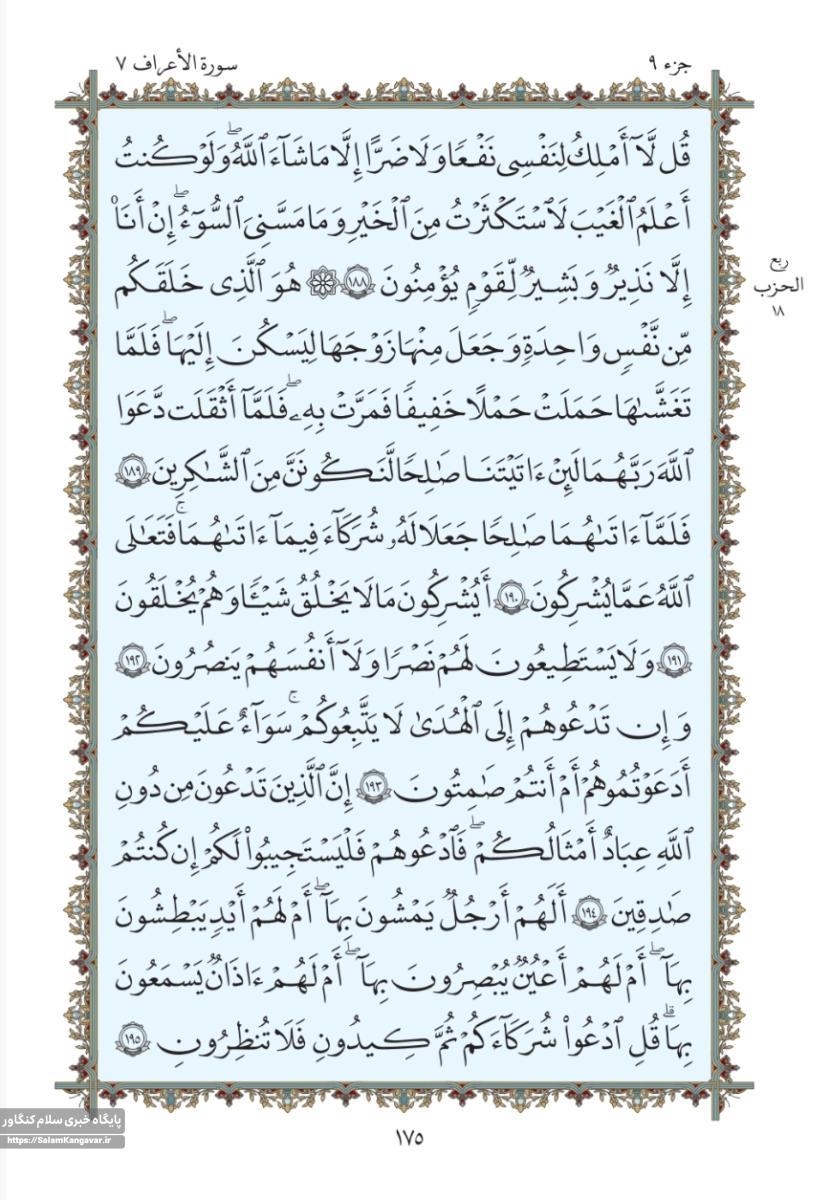 سورة الأعراف ٧
جزء ٩
قُل لَّآ أَمْلِكُ لِنَفْسِى نَفْعًا وَلَا ضَرًّا إِلَّا مَا شَآءَ ٱللَّهُ ۚ وَلَوْ كُنتُ
أَعْلَمُ ٱلْغَيْبَ لَٱسْتَكْثَرْتُ مِنَ ٱلْخَيْرِ وَمَا مَسَّنِىَ ٱلسُّوٓءُ ۚ إِنْ أَنَا۠
إِلَّا نَذِيرٌ وَبَشِيرٌ لِّقَوْمٍ يُؤْمِنُونَ ١٨٨ ۞ هُوَ ٱلَّذِى خَلَقَكُم
ربع
الحزب
١٨
مِّن نَّفْسٍ وَٰحِدَةٍ وَجَعَلَ مِنْهَا زَوْجَهَا لِيَسْكُنَ إِلَيْهَا ۖ فَلَمَّا
تَغَشَّىٰهَا حَمَلَتْ حَمْلًا خَفِيفًا فَمَرَّتْ بِهِۦ ۖ فَلَمَّآ أَثْقَلَت دَّعَوَا
ٱللَّهَ رَبَّهُمَا لَئِنْ ءَاتَيْتَنَا صَٰلِحًا لَّنَكُونَنَّ مِنَ ٱلشَّٰكِرِينَ ١٨٩
فَلَمَّآ ءَاتَىٰهُمَا صَٰلِحًا جَعَلَا لَهُۥ شُرَكَآءَ فِيمَآ ءَاتَىٰهُمَا ۚ فَتَعَٰلَى
ٱللَّهُ عَمَّا يُشْرِكُونَ ١٩٠ أَيُشْرِكُونَ مَا لَا يَخْلُقُ شَيْـًٔا وَهُمْ يُخْلَقُونَ
١٩١ وَلَا يَسْتَطِيعُونَ لَهُمْ نَصْرًا وَلَآ أَنفُسَهُمْ يَنصُرُونَ ١٩٢
وَإِن تَدْعُوهُمْ إِلَى ٱلْهُدَىٰ لَا يَتَّبِعُوكُمْ ۚ سَوَآءٌ عَلَيْكُمْ
أَدَعَوْتُمُوهُمْ أَمْ أَنتُمْ صَٰمِتُونَ ١٩٣ إِنَّ ٱلَّذِينَ تَدْعُونَ مِن دُونِ
ٱللَّهِ عِبَادٌ أَمْثَالُكُمْ ۖ فَٱدْعُوهُمْ فَلْيَسْتَجِيبُوا۟ لَكُمْ إِن كُنتُمْ
صَٰدِقِينَ ١٩٤ أَلَهُمْ أَرْجُلٌ يَمْشُونَ بِهَآ ۖ أَمْ لَهُمْ أَيْدٍ يَبْطِشُونَ
بِهَآ ۖ أَمْ لَهُمْ أَعْيُنٌ يُبْصِرُونَ بِهَآ ۖ أَمْ لَهُمْ ءَاذَانٌ يَسْمَعُونَ
بِهَا ۗ قُلِ ٱدْعُوا۟ شُرَكَآءَكُمْ ثُمَّ كِيدُونِ فَلَا تُنظِرُونِ ١٩٥
١٧٥
پایگاه خبری سلام کنگاور
https://SalamKangavar.ir